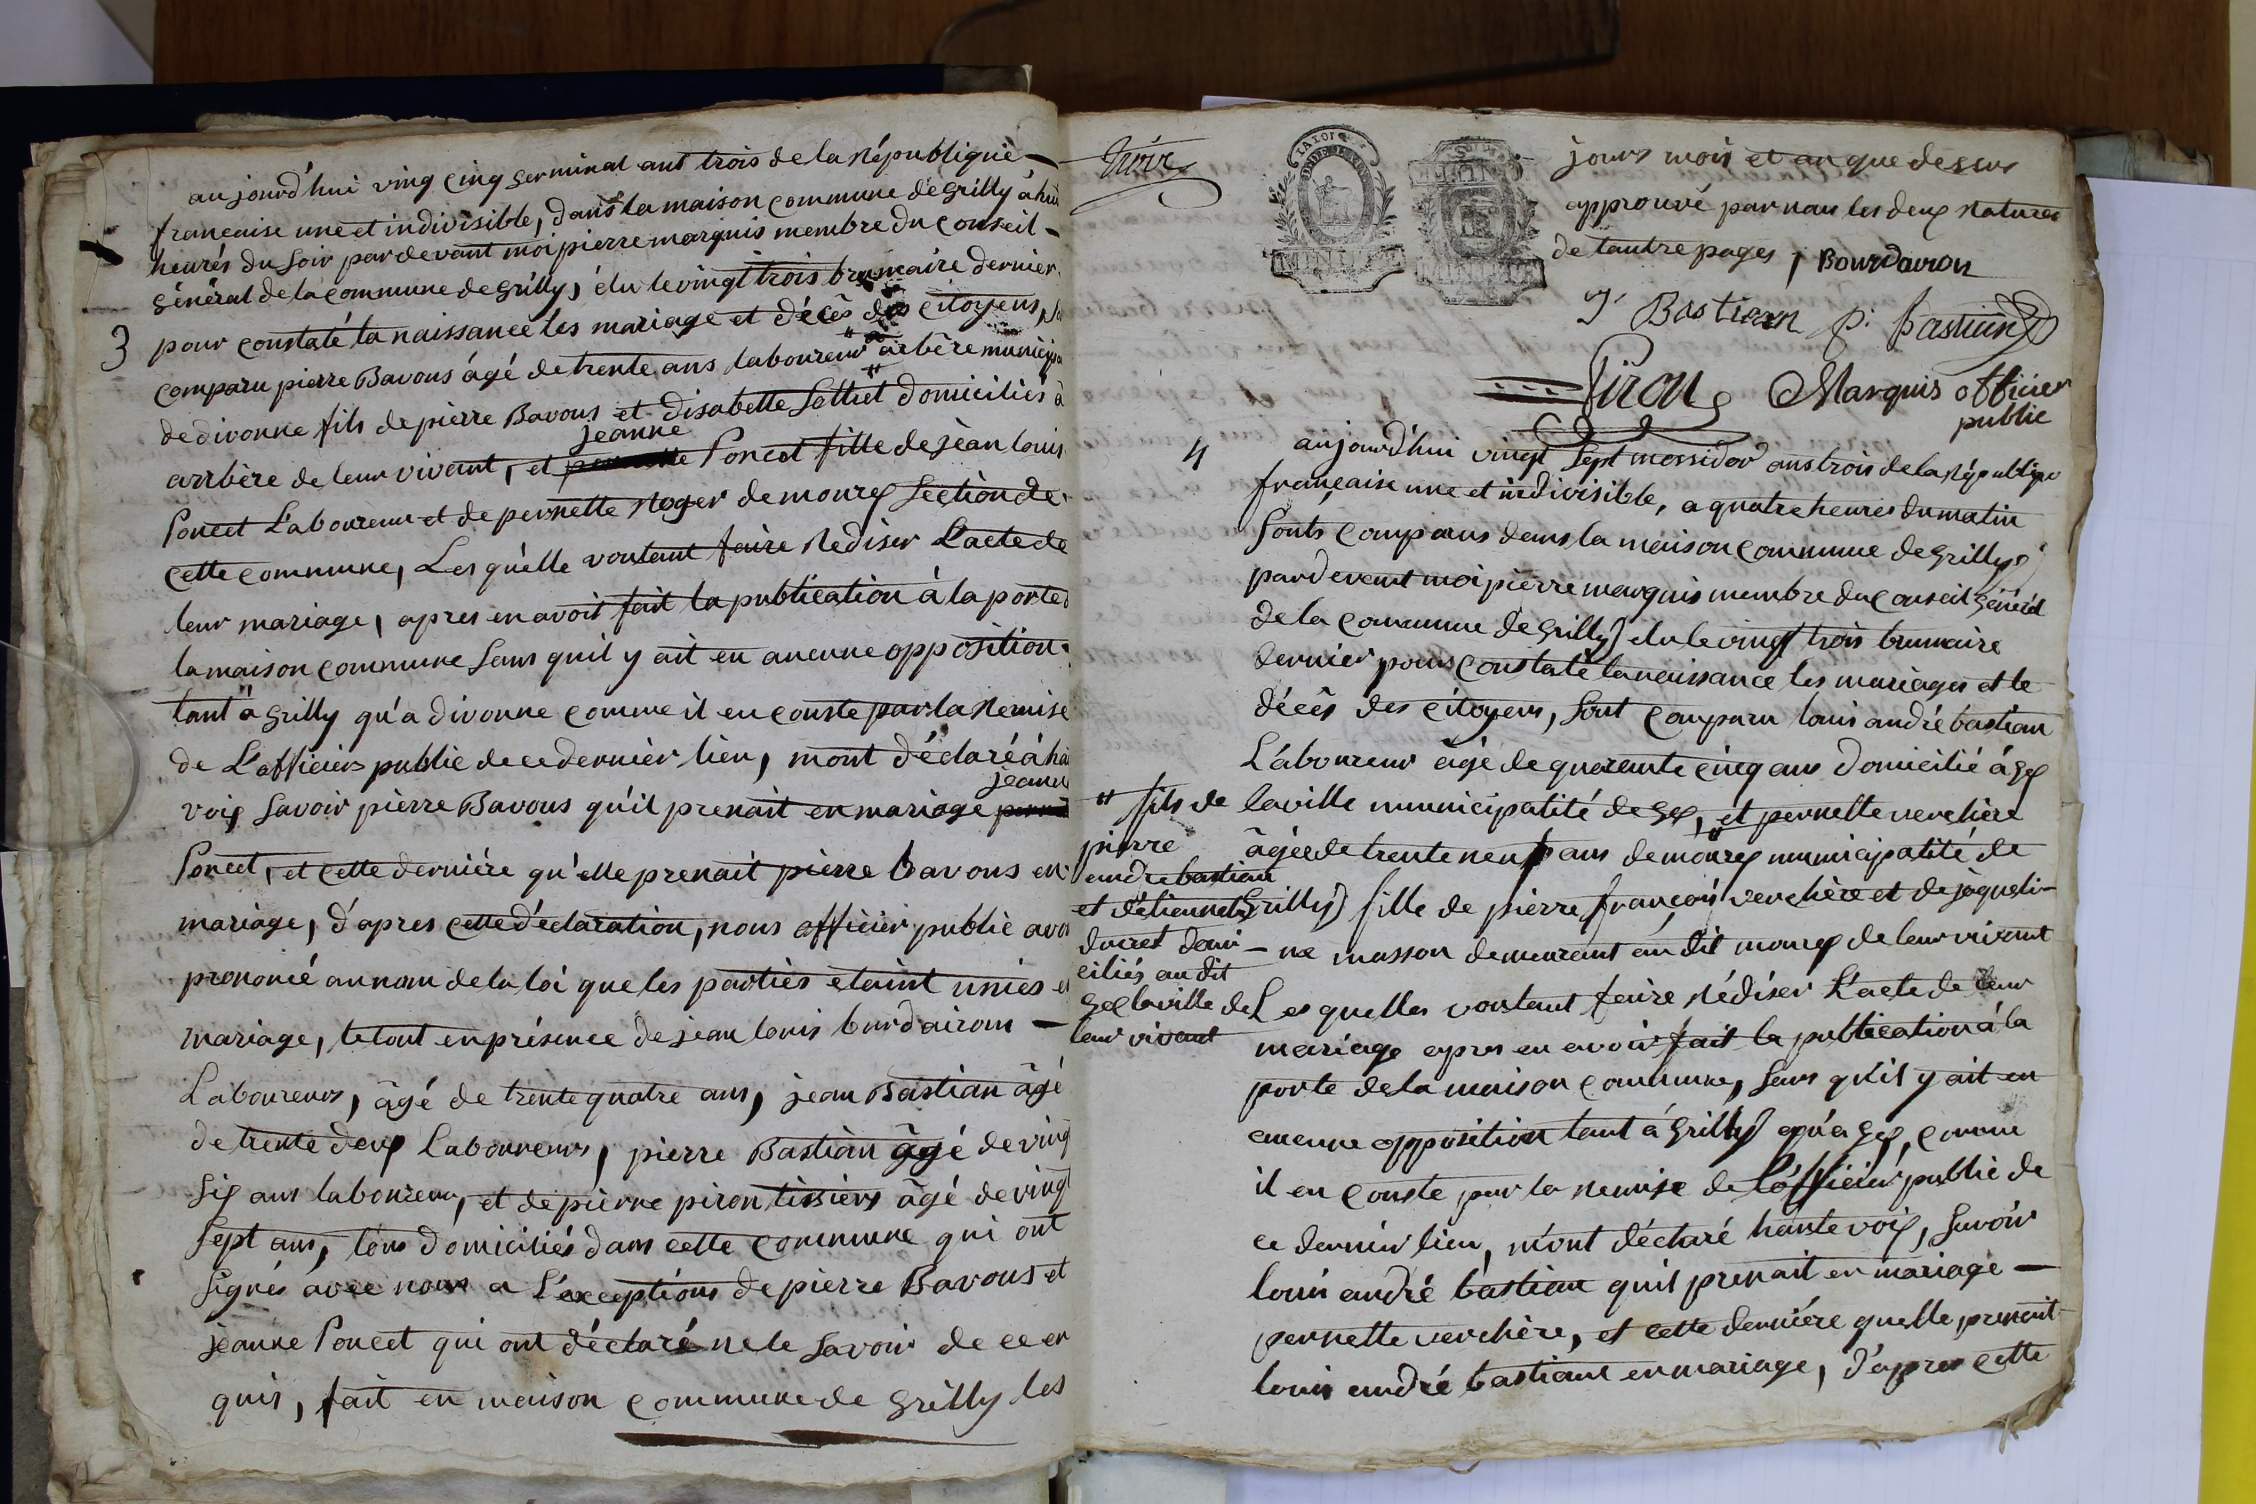 aujourd'hui ving cinq germinal ant trois de la République
francaise une et indivisible, dans la maison commune de Grilly à hui
heurés du soir pardevant moi pierre marquis membre du conseil
Général de la commune de Grilly, élu le vingt trois brumaire dernier
3 pour constaté la naissance les mariage et décês des citoyens,
comparu pierre Bavous âgé de trente ans laboureur arbère municipa
de divonne fils de pierre Bavous et disabette domiciliés à
jeanne
arrbère de leur vivant, et Poncet fille de jean louis
Poncet Laboureur et de pernette Roger de mourex section de
cette commune, Lesquélle voulant faire Rediser Lacte de
leur mariage, apres en avoit fait la publication à la porte d
la maison commune sans quil y ait eu aucunne opposition
tant à Grilly qu'a divonne comme il en conste par la Remise
de Lofficiers public de ce dernièr lieu, mont déclaré à ha
jeanne
voix savoir pierre Bavous qu'il prenait en mariage
Poncet, et cette derniére qu'elle prenait pierre bavous en
mariage, d'apres cette déclaration, nous officièr public avo
prononcé au nom de la loi que les partiès etaint uniès e
mariage, le tout en présence de jean louis burdairon
Laboureurs, âgé de trente quatre ans, jean Bastian âgé
de trente deux Laboureurs, pierre Bastian âgé de ving
six ans laboureur, et de pierre piron tissiers âgé de vingt
sept ans, tous domiciliés dans cette commune qui ont
signés avec nous a L'exceptions de pierre Bavous et
jeanne Poncet qui ont déclaré ne le savoir de ce en
quis, fait en maison commune de Grilly les
LA LOI
MINUTE
MINUTE
jours mois et an que dessus
approuvé par nous les deux Ratures
de lautre pages, Bourdairon
J' Bastian p: bastian
Piron Marquis officier
public
4 aujourd'hui vingt sept messidor ans trois de la République
française une et indivisible, a quatre heures du matin
sonts comparus dans la maison commune de Grilly
pardevant moi pierre marquis membre du conseil Général
de la commune de Grilly élu le vingt trois brumaire
dernier pour constaté la naissance les mariages et le
décês des citoyens, sont comparu louis andré bastian
Laboureur âgé de quarante cinq ans domicilié à Gex
laville municipalité de Gex, et pernette verchère
âgée de trente neuf ans de mourex municipalité de
Grilly fille de pierre françois verchère et de jaqueli-
ne masson demeurant au dit mourex de leur vivant
" fils de
pierre
andre bastian
et détiennette
ducret domi-
ciliés au dit
Gex laville de
leur vivant
Les quelles voulant faire Rédiser L'acte de leur
mariage apres en avoir fait la publication à la
porte de la maison commune, sans qu'il y ait eu
aucune opposition tant à Grilly qu'a Gex, comme
il en conste par la remise de lófficièr public de
ce dernièr lieu, m'ont déclaré haute voix, savoir
louis andré bastian quil prenait en mariage
pernette verchère, et cette derniére quelle prenait
louis andré bastians en mariage, d'apres cette